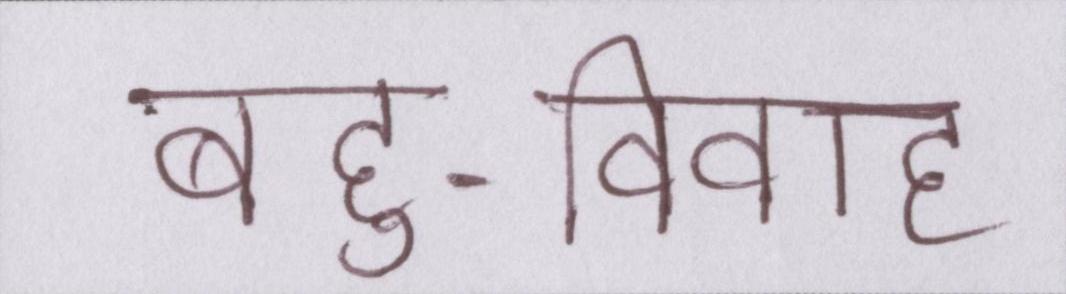 बहु-विवाह